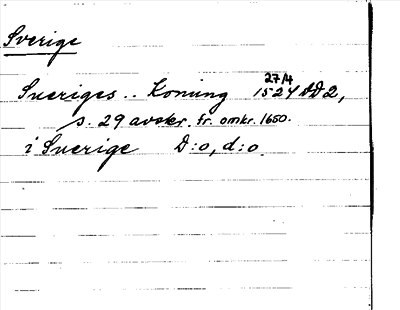 Sverige
27/4
Sveriges .. Konung 1524 DD2,
s. 29 avskr. fr. omkr. 1650.
i Sverige D:o, d:o